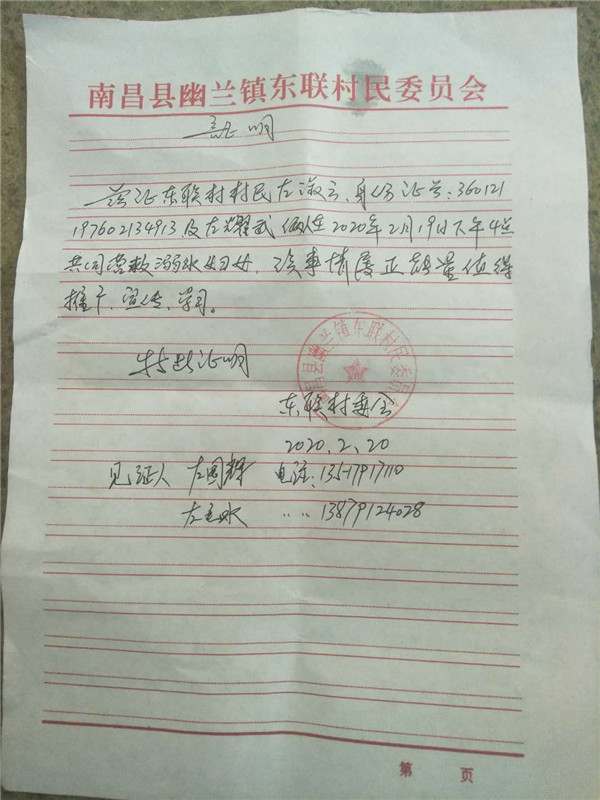 南昌县幽兰镇东联村民委员会
证明
兹证东联村村民左淑云,身份证号:360121
197602134913及左耀武俩人在2020年2月19日下午4点
共同营救溺水妇女,该事情属正能量值得
推广、宣传、学习。
特此证明
南昌县幽兰镇东联村民委员会
东联村委会
2020.2.20
见证人 左国辉 电话:13517917110
左 水 〃 〃 13879124028
第 页